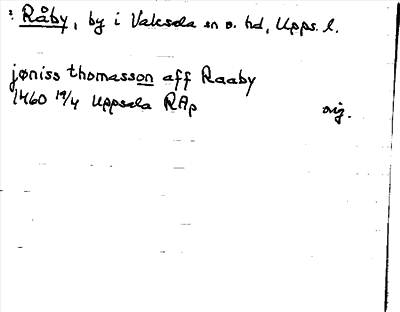 : Råby, by i Vaksala sn o. hd, Upps. l.
jøniss thomasson aff Raaby
1460 19/4 Uppsala RAp orig.